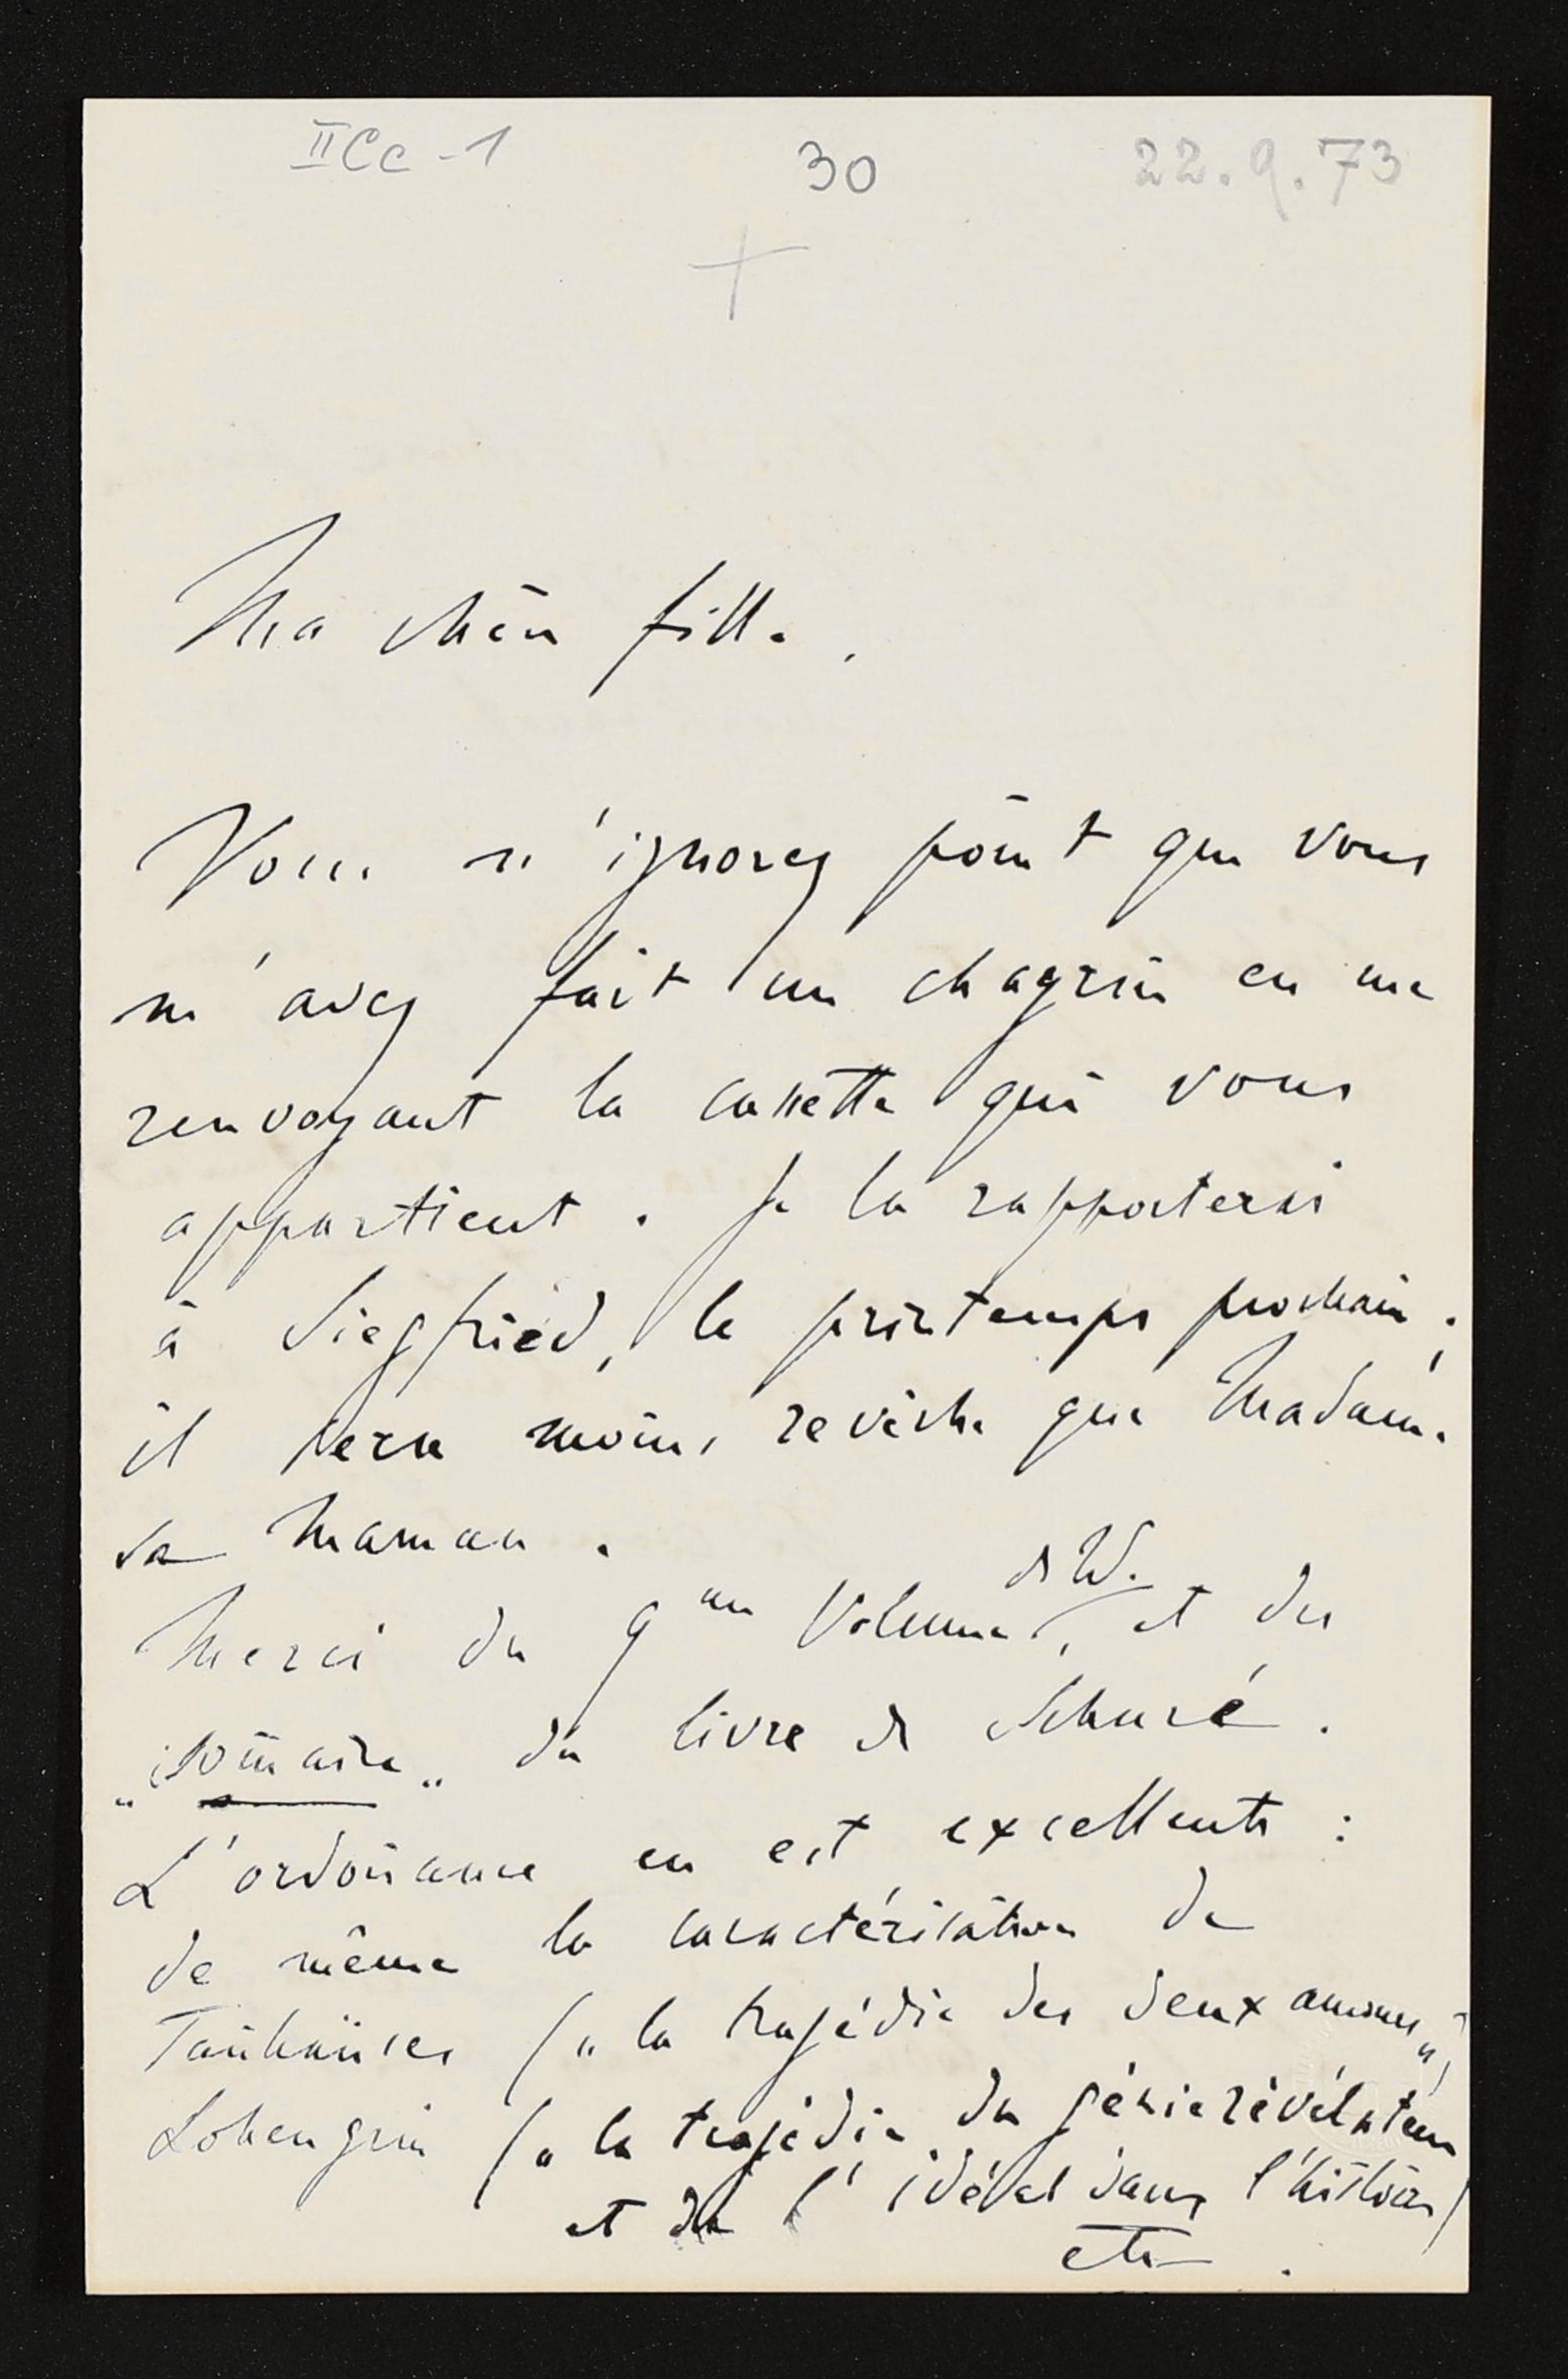 IICc-1
30
22.9.73
Ma chère fille,
Vous n'ignorez point que vous
m'avez fait un chagrin en me
renvoyant la cassette qui vous
appartient. Je la rapporterai
à Siegfried, le printemps prochain;
il sera moins revêche que Madame
sa Maman.
Merci du 9me Volume de W., et du
„som̄aire„ du livre de Schuré.
L'ordon̄ance en est excellente:
de même la caractérisation de
Tan̄haüser („la tragédie des deux amours„)
Lohengrin („la tragédie du génie révélateur
et de l'idéal dans l'histoire)
etc.